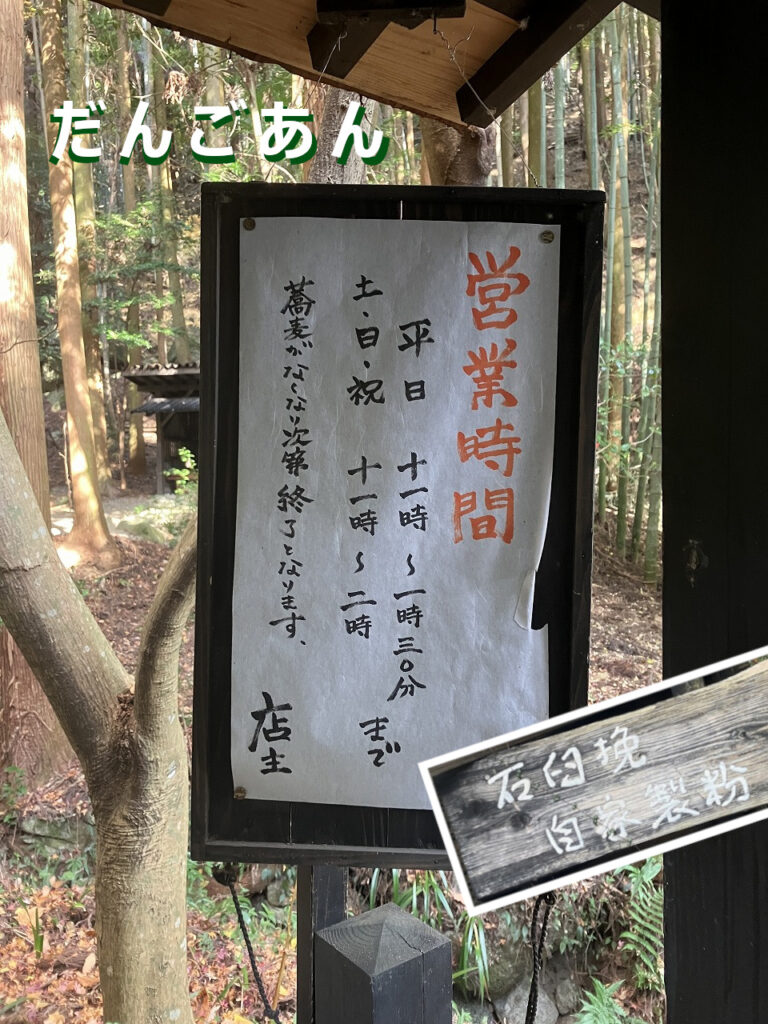 だんごあん
営業時間
平日 十一時〜一時三〇分
土・日・祝 十一時〜二時
まで
蕎麦がなくなり次第終了となります、
店主
石臼挽
自家製粉